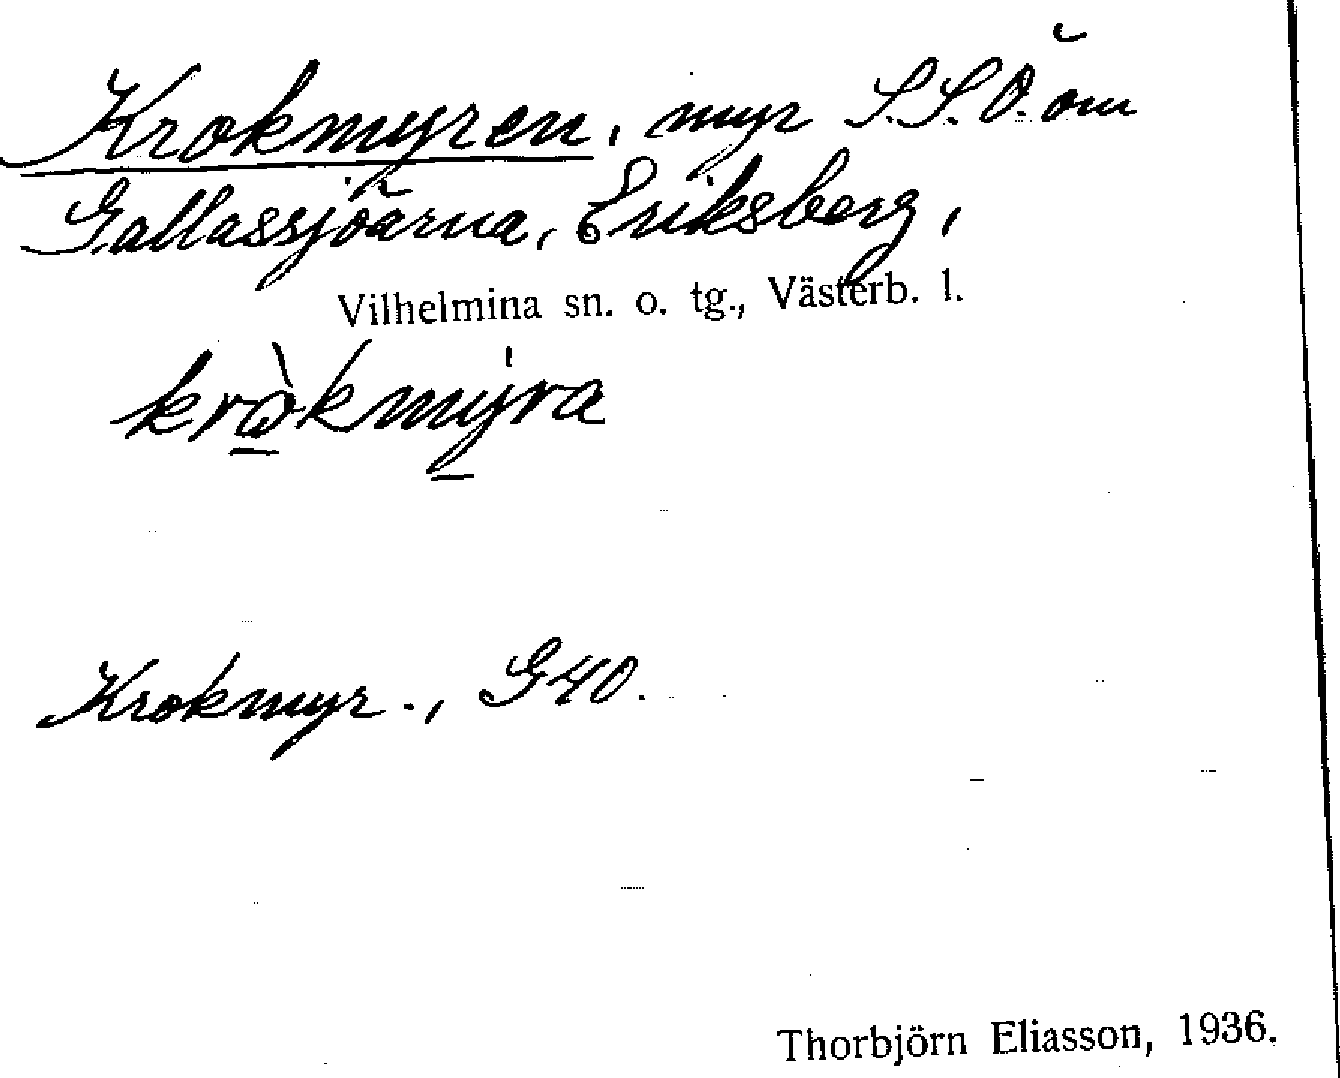 Krokmyren, myr S.S.O. om
Gallassjöarna, Eriksberg,
Vilhelmina sn. o. tg., Västerb. l.
kròkmýra
Krokmyr., G40.
Thorbjörn Eliasson, 1936.